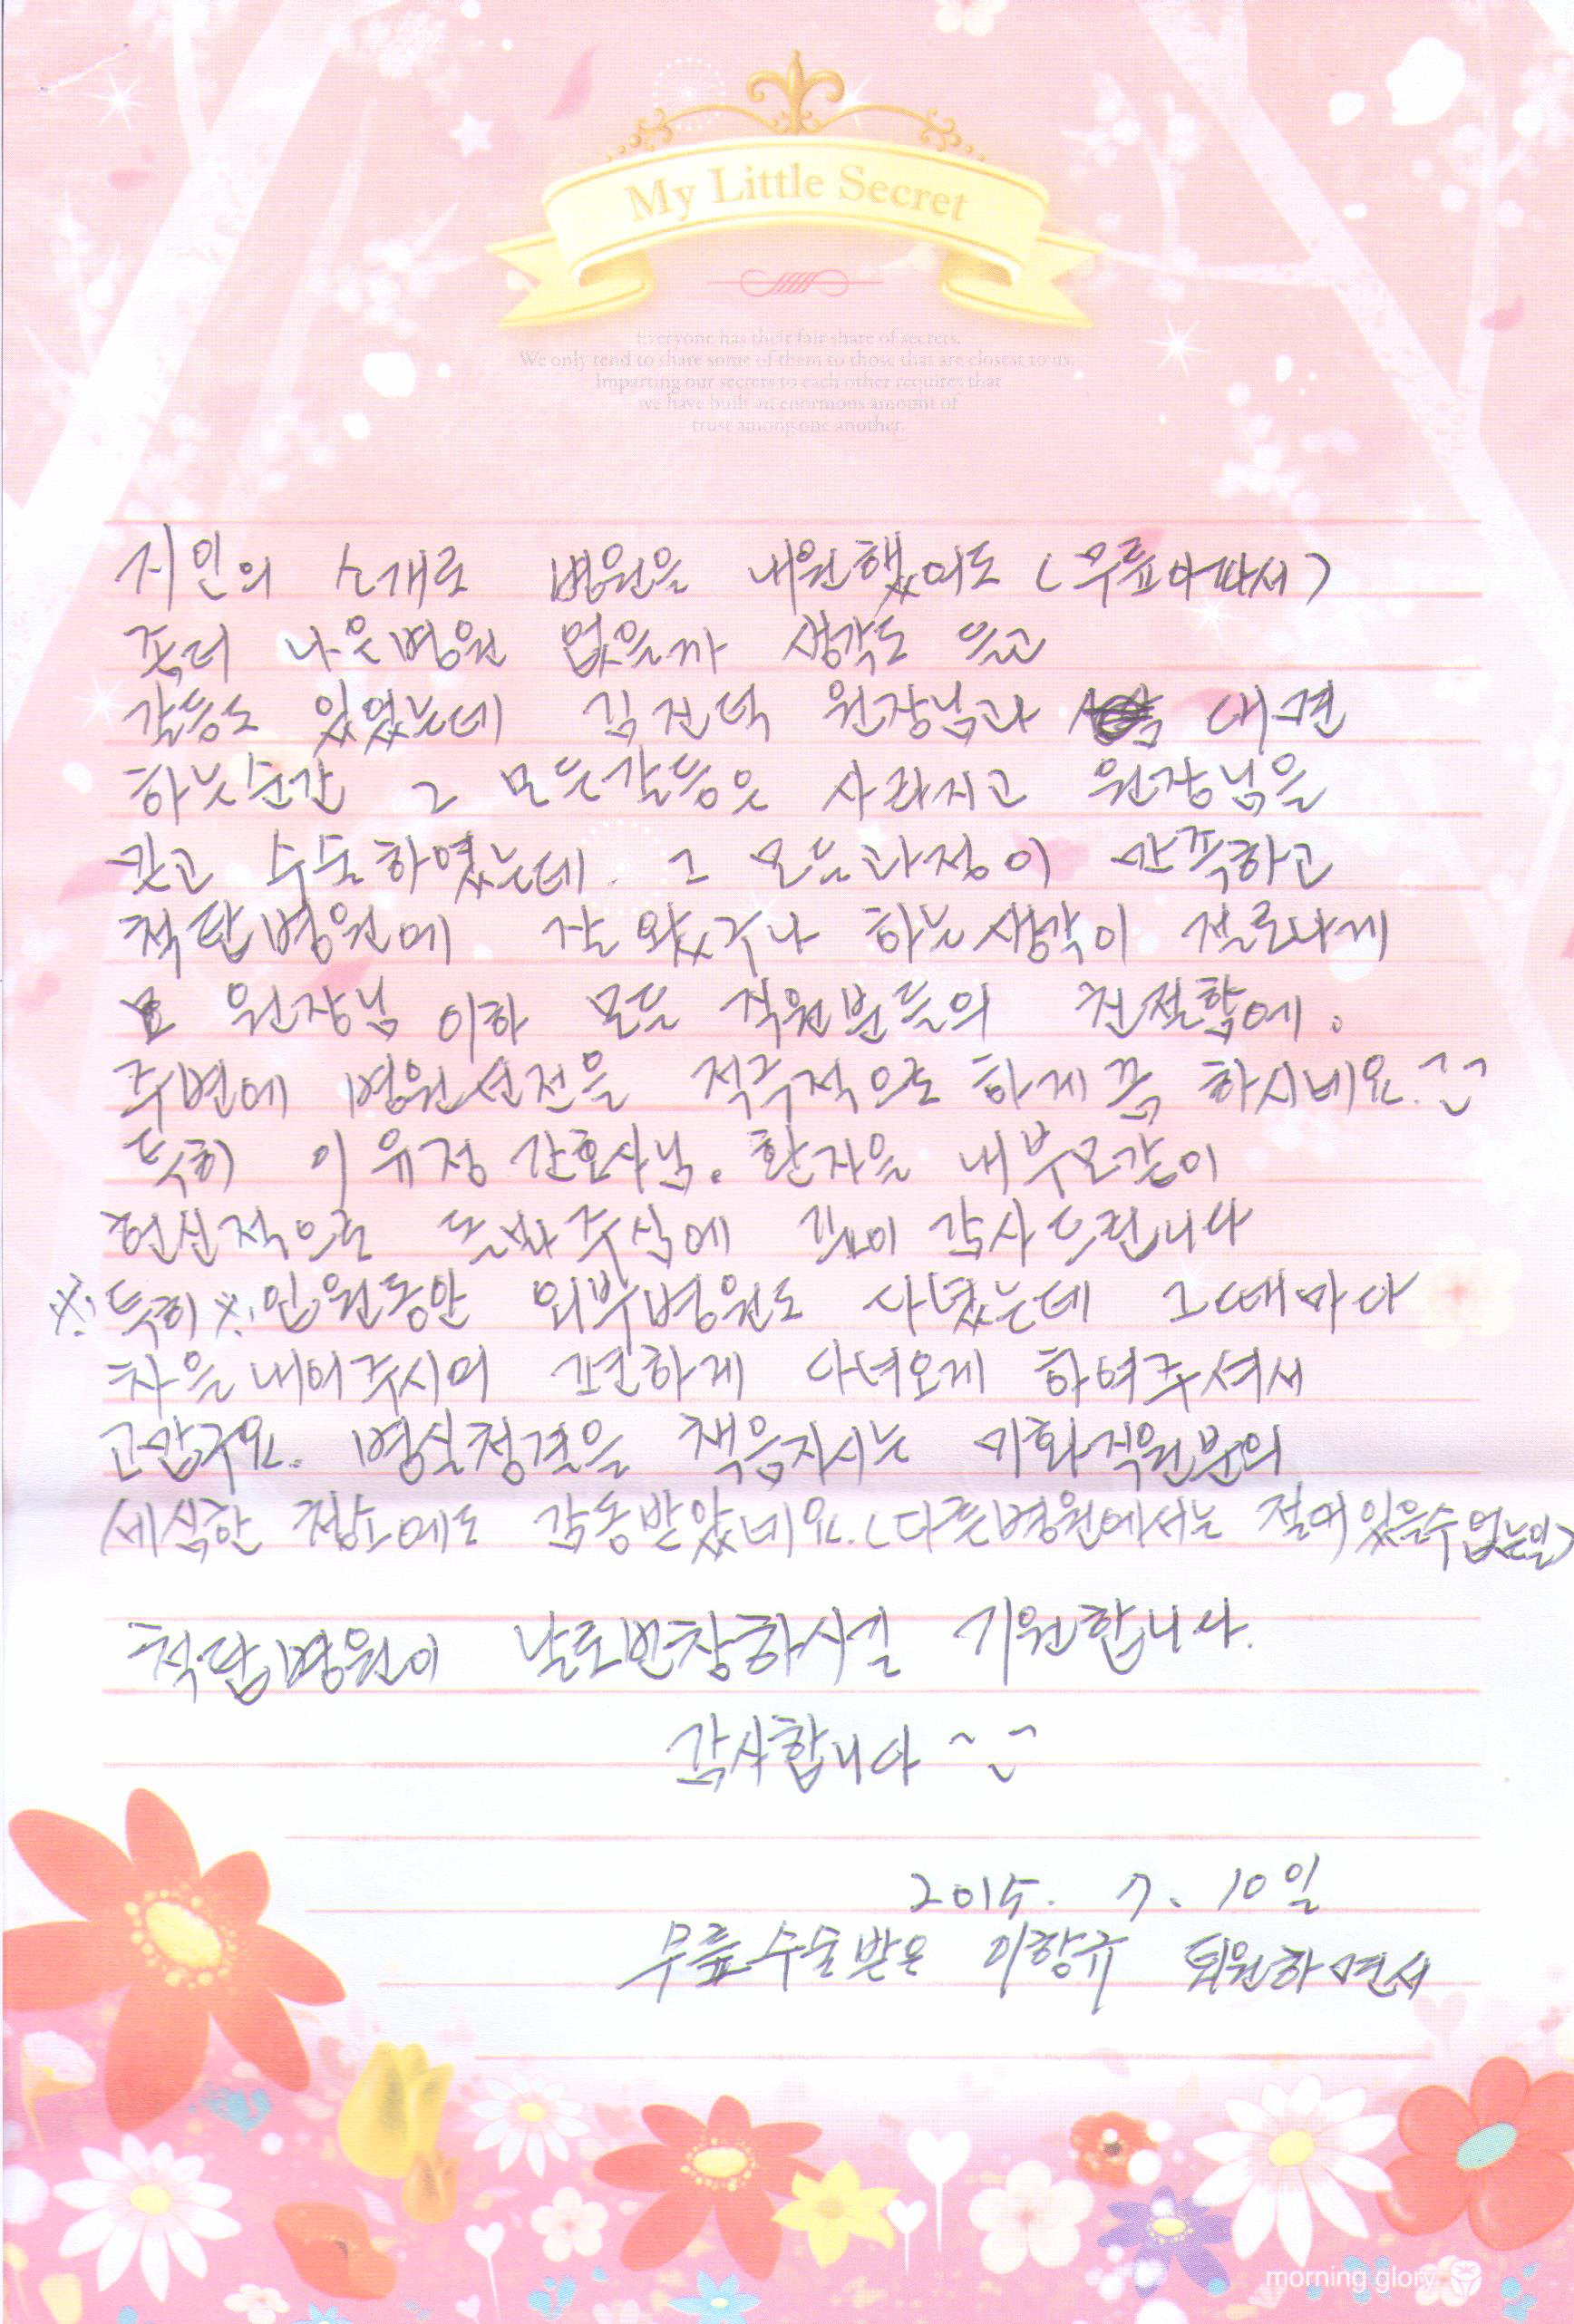 My Little Secret
Everyone has their fair share of secrets.
We only tend to share some of them to those that are closest to us.
Imparting our secrets to each other requires that
we have built an enormous amount of
trust among one another.
지인의 소개로 병원을 내원했어도 (무릎아파서)
좀더 나은병원 없을까 생각도 들고
갈등도 있었는데 김진덕 원장님과 대면
하는순간 그 모든갈등은 사라지고 원장님을
믿고 수술하였는데 그 모든과정이 만족하고
척탑병원에 잘 왔구나 하는생각이 절로나게
원장님 이하 모든 직원분들의 친절함에.
주변에 병원선전을 적극적으로 하게끔 하시네요.
특히 이유정 간호사님. 환자을 내부모같이
헌신적으로 돌봐주심에 깊이 감사드립니다
※특히※ 입원동안 외부병원도 다녔는데 그때마다
차을 내어주시어 편하게 다녀오게 하여주셔서
고맙구요. 병실청결을 책음지시는 미화직원분의
세심한 청소에도 감동받았네요.(다른병원에서는 절대있을수없는일)
척탑병원이 날로번창하시길 기원합니다.
감사합니다 ~
2015. 7. 10일
무릎수술받은 이항규 퇴원하면서
morning glory